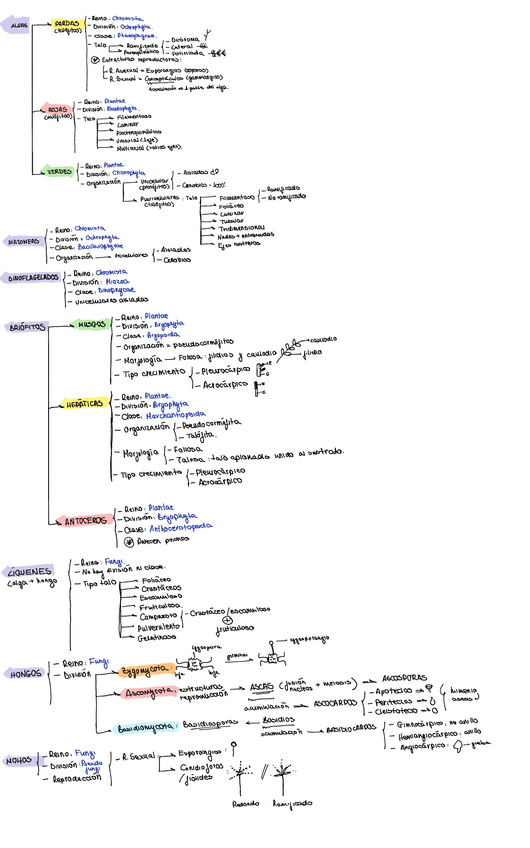 ALGAS
PARDAS
(talófitos)
- Reino: Chromista
- División: Ochrophyta
- Clase: Phaeophyceae
- Talo
Ramificado
Parenquimático
- Dicótoma
- Lateral
- Verticilada
Estructuras reproductoras:
R. Asexual = Esporangios (esporas)
R. Sexual = Conceptáculos (gametangios)
ROJAS
(talófitos)
- Reino: Plantae
- División: Rhodophyta
- Talo
Filamentoso
Laminar
Uniaxial (1 eje)
Multiaxial (varios ejes)
VERDES
- Reino: Plantae
- División: Chlorophyta
- Organización
Unicelular
(protófitos)
- Aislados
- Cenobios
Pluricelulares: Talo
(talófitos)
Filamentoso
- Ramificado
- No ramificado
Foliáceo
Laminar
Tubular
Tridimensional
Nudos + entrenudos
DIATOMEAS
- Reino: Chromista
- División = Ochrophyta
- Clase: Bacillariophyceae
- Organización
Unicelulares
- Aislados
- Cenobios
DINOFLAGELADOS
- Reino: Chromista
- División: Miozoa
- Clase: Dinophyceae
- Unicelulares aislados
BRIÓFITOS
MUSGOS
- Reino: Plantae
- División: Bryophyta
- Clase: Bryopsida
- Organización = pseudocormófitos
- Morfología → Foliosa: filidios y caulidio
caulidio
filidio
- Tipo crecimiento
- Pleurocárpico
- Acrocárpico
HEPÁTICAS
- Reino: Plantae
- División: Bryophyta
- Clase: Marchantiopsida
- Organización
- Pseudocormófita
- Talófita
- Morfología
- Foliosa
- Talosa: talo aplanado unido al sustrato.
- Tipo crecimiento
- Pleurocárpico
- Acrocárpico
ANTOCEROS
- Reino: Plantae
- División: Bryophyta
- Clase: Anthocerotopsida
LÍQUENES
(alga + hongo)
- Reino: Fungi
- No hay división ni clase.
- Tipo talo
Foliáceo
Crustáceos
Escamuloso
Fruticuloso
Compuesto
- Crustáceo/escamuloso
+
fruticuloso
Pulverulento
Gelatinoso
HONGOS
- Reino: Fungi
- División
Zygomycota:
zigospora
hifa
hifa
germina
Ascomycota: estructuras reproducción → ASCAS (fusión núcleos + meiosis) → ASCOSPORAS
acumulación → ASCOCARPOS
- Apotecios
- Peritecios
- Cleistotecio
himenio
Basidiomycota: Basidiosporas ← Basidios
acumulación → BASIDIOCARPOS
- Gimnocárpico, no anillo
- Hemiangiocárpico: anillo
- Angiocárpico:
gleba
MOHOS
- Reino: Fungi
- División: Pseudo
fungi
- Reproducción
- R. Sexual
Esporangios
Conidióforos
/fiálides
Redondo
Ramificado